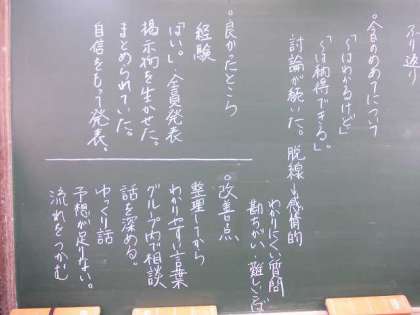 ふり返り
○今日のめあてについて
「〜はわかるけど」
「〜は納得できる。」
討論が続いた。脱線 感情的
わかりにくい質問
勘ちがい 難しいことば
○良かったところ
経験
「はい。」全員発表
掲示物を生かせた。
まとめられていた。
自信をもって発表。
○改善点
整理してから
わかりやすい言葉
グループ内で相談
話を深める。
ゆっくり話
予想が足りない。
流れをつかむ